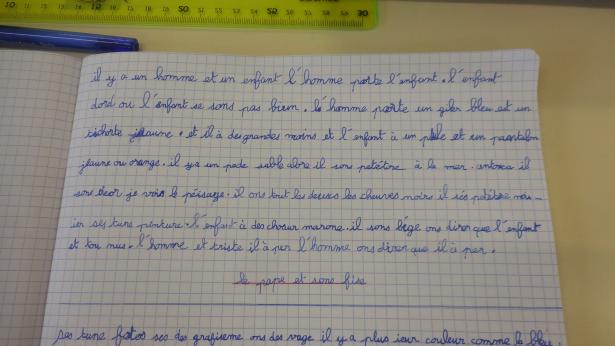 10 20 30
il y a un homme et un enfant l'homme porte l'enfant. l'enfant
dord ou l'enfant se sons pas bien. l'homme porte un giler bleu et un
tichorte jeaune. et il à des grandes mains et l'enfant à un pule et un pantalon
jeaune ou orange. il y a un pade sable alore il sons petétre à la mer. il
je vois le péisage. il ons tout les deuxes les cheuves noirs il
ses tune pinture. l'enfant à des chosur marone. il sons bége ons direr que l'enfant
et tou nus. l'homme et triste il à per l'homme ons direr que il à per.
le pape et sons fiss
ses tune fotos ses des grafiseme ons des vage il y a plus ieur couleur comme le bleu.